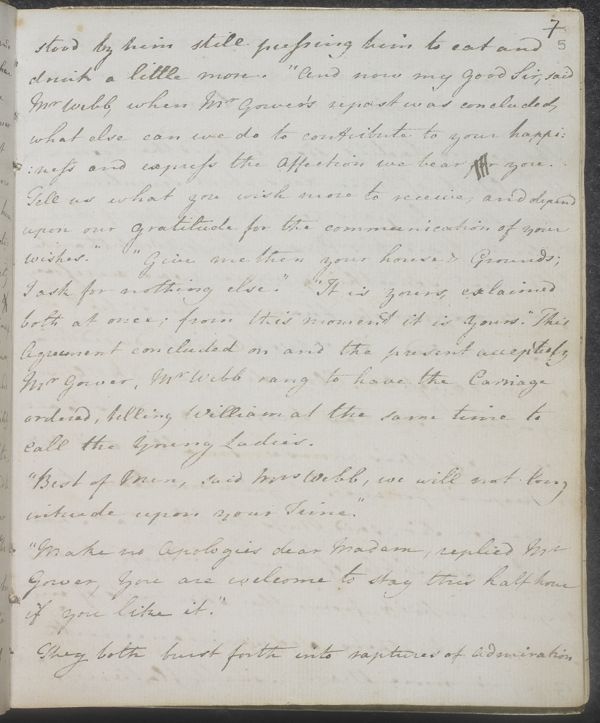 7
5
stood by him still pressing him to eat and
drink a little more. "And now my good Sir, said
Mr Webb, when Mr Gower's repast was concluded,
what else can we do to contribute to your happi:
:ness and express the affection we bear you.
Tell us what you wish more to receive, and depend
upon our gratitude for the communication of your
wishes." "Give me then your house & Grounds;
I ask for nothing else." "It is yours, exclaimed
both at once; from this moment it is yours." This
Agreement concluded on and the present accepted by
Mr Gower, Mr Webb rang to have the Carriage
ordered, telling William at the same time to
call the Young Ladies.
"Best of Men, said Mrs Webb, we will not long
intrude upon your Time."
"Make no Apologies dear Madam, replied Mr
Gower, You are welcome to stay this half hour
if you like it."
They both burst forth into raptures of Admiration